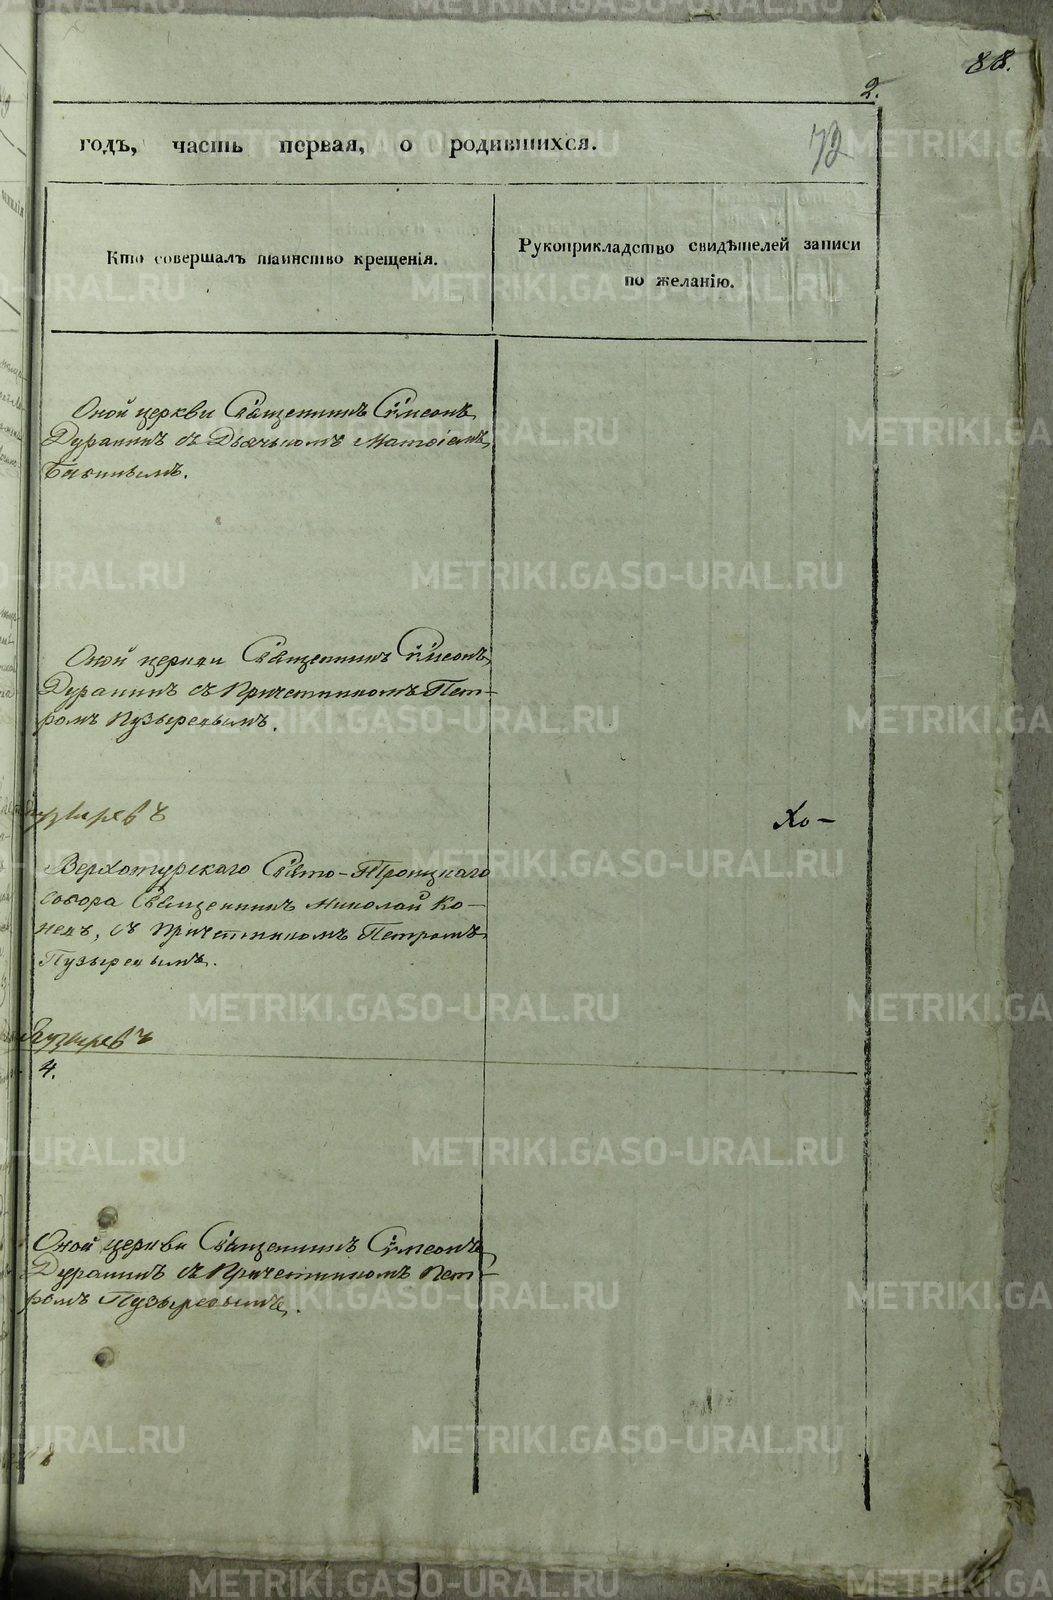 88.
2.
годъ, часть первая, о родившихся.
72
Кто совершалъ таинство крещенія.
Рукоприкладство свидѣтелей записи
по желанію.
Оной церкви Священникъ Симеонъ
Дуранинъ съ Дьячькомъ
Оной церкви Священникъ Симеонъ
Дуранинъ съ Причетникомъ Пет-
ромъ Пузыревымъ.
Пузыревъ
Хо-
Верхотурскаго Свято-Троицкаго
собора Священникъ Николай Ко-
съ Причетникомъ Петромъ
Пузыревымъ.
Пузыревъ
4.
Оной церкви Священникъ Симеонъ
Дуранинъ съ Причетникомъ Пет-
ромъ Пузыревымъ.
METRIKI.GASO-URAL.RU